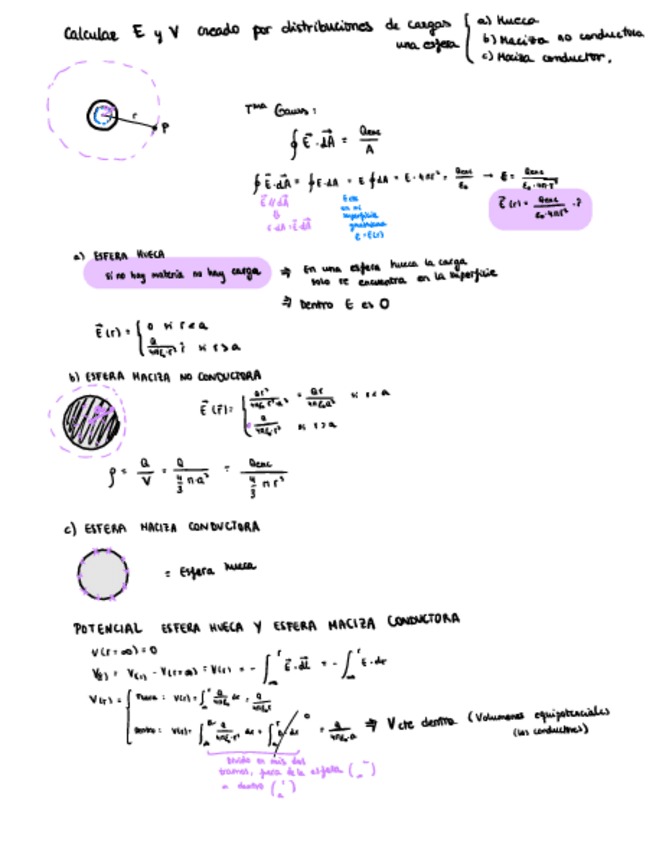 Calcular E y V creado por distribuciones de cargas
una esfera { a) Hueca
b) Maciza no conductora
c) Maciza conductor.
r P
Tma Gauss:
∮ E⃗ · dA⃗ = Qenc / A
∮ E⃗·dA⃗ = ∮ E·dA = E ∮ dA = E · 4πr² = Qenc/ε₀ → E = Qenc/(ε₀·4πr²)
E⃗ // dA⃗
E⃗(r) = Qenc/(ε₀·4πr²) · r̂
E cte
en mi
superficie
gaussiana
E = E(r)
a) ESFERA HUECA
si no hay materia no hay carga ⇒ En una esfera hueca la carga
solo se encuentra en la superficie
⇒ Dentro E es 0
E⃗(r) = { 0 si r<a
Q/(4πε₀·r²) r̂ si r>a
b) ESFERA MACIZA NO CONDUCTORA
E⃗(r⃗) = { Qr³/(4πε₀·r²·a³) = Qr/(4πε₀a³) si r<a
Q/(4πε₀·r²) si r>a
ρ = Q/V = Q/(4/3 π a³) = Qenc/(4/3 π r³)
c) ESFERA MACIZA CONDUCTORA
= Esfera hueca
POTENCIAL ESFERA HUECA Y ESFERA MACIZA CONDUCTORA
V(r=∞)=0
V(r) - V(r=∞) = V(r) = - ∫ E⃗·dl⃗ = - ∫ E·dr
V(r) = { Fuera: V(r) = ∫ Q/(4πε₀r²) dr = Q/(4πε₀r)
Dentro: V(r) = ∫ Q/(4πε₀·r²) dr + ∫ 0·dr = Q/(4πε₀·a) ⇒ V cte dentro (Volumenes equipotenciales
(los conductores)
Divido en mis dos
tramos, fuera de la esfera
a dentro